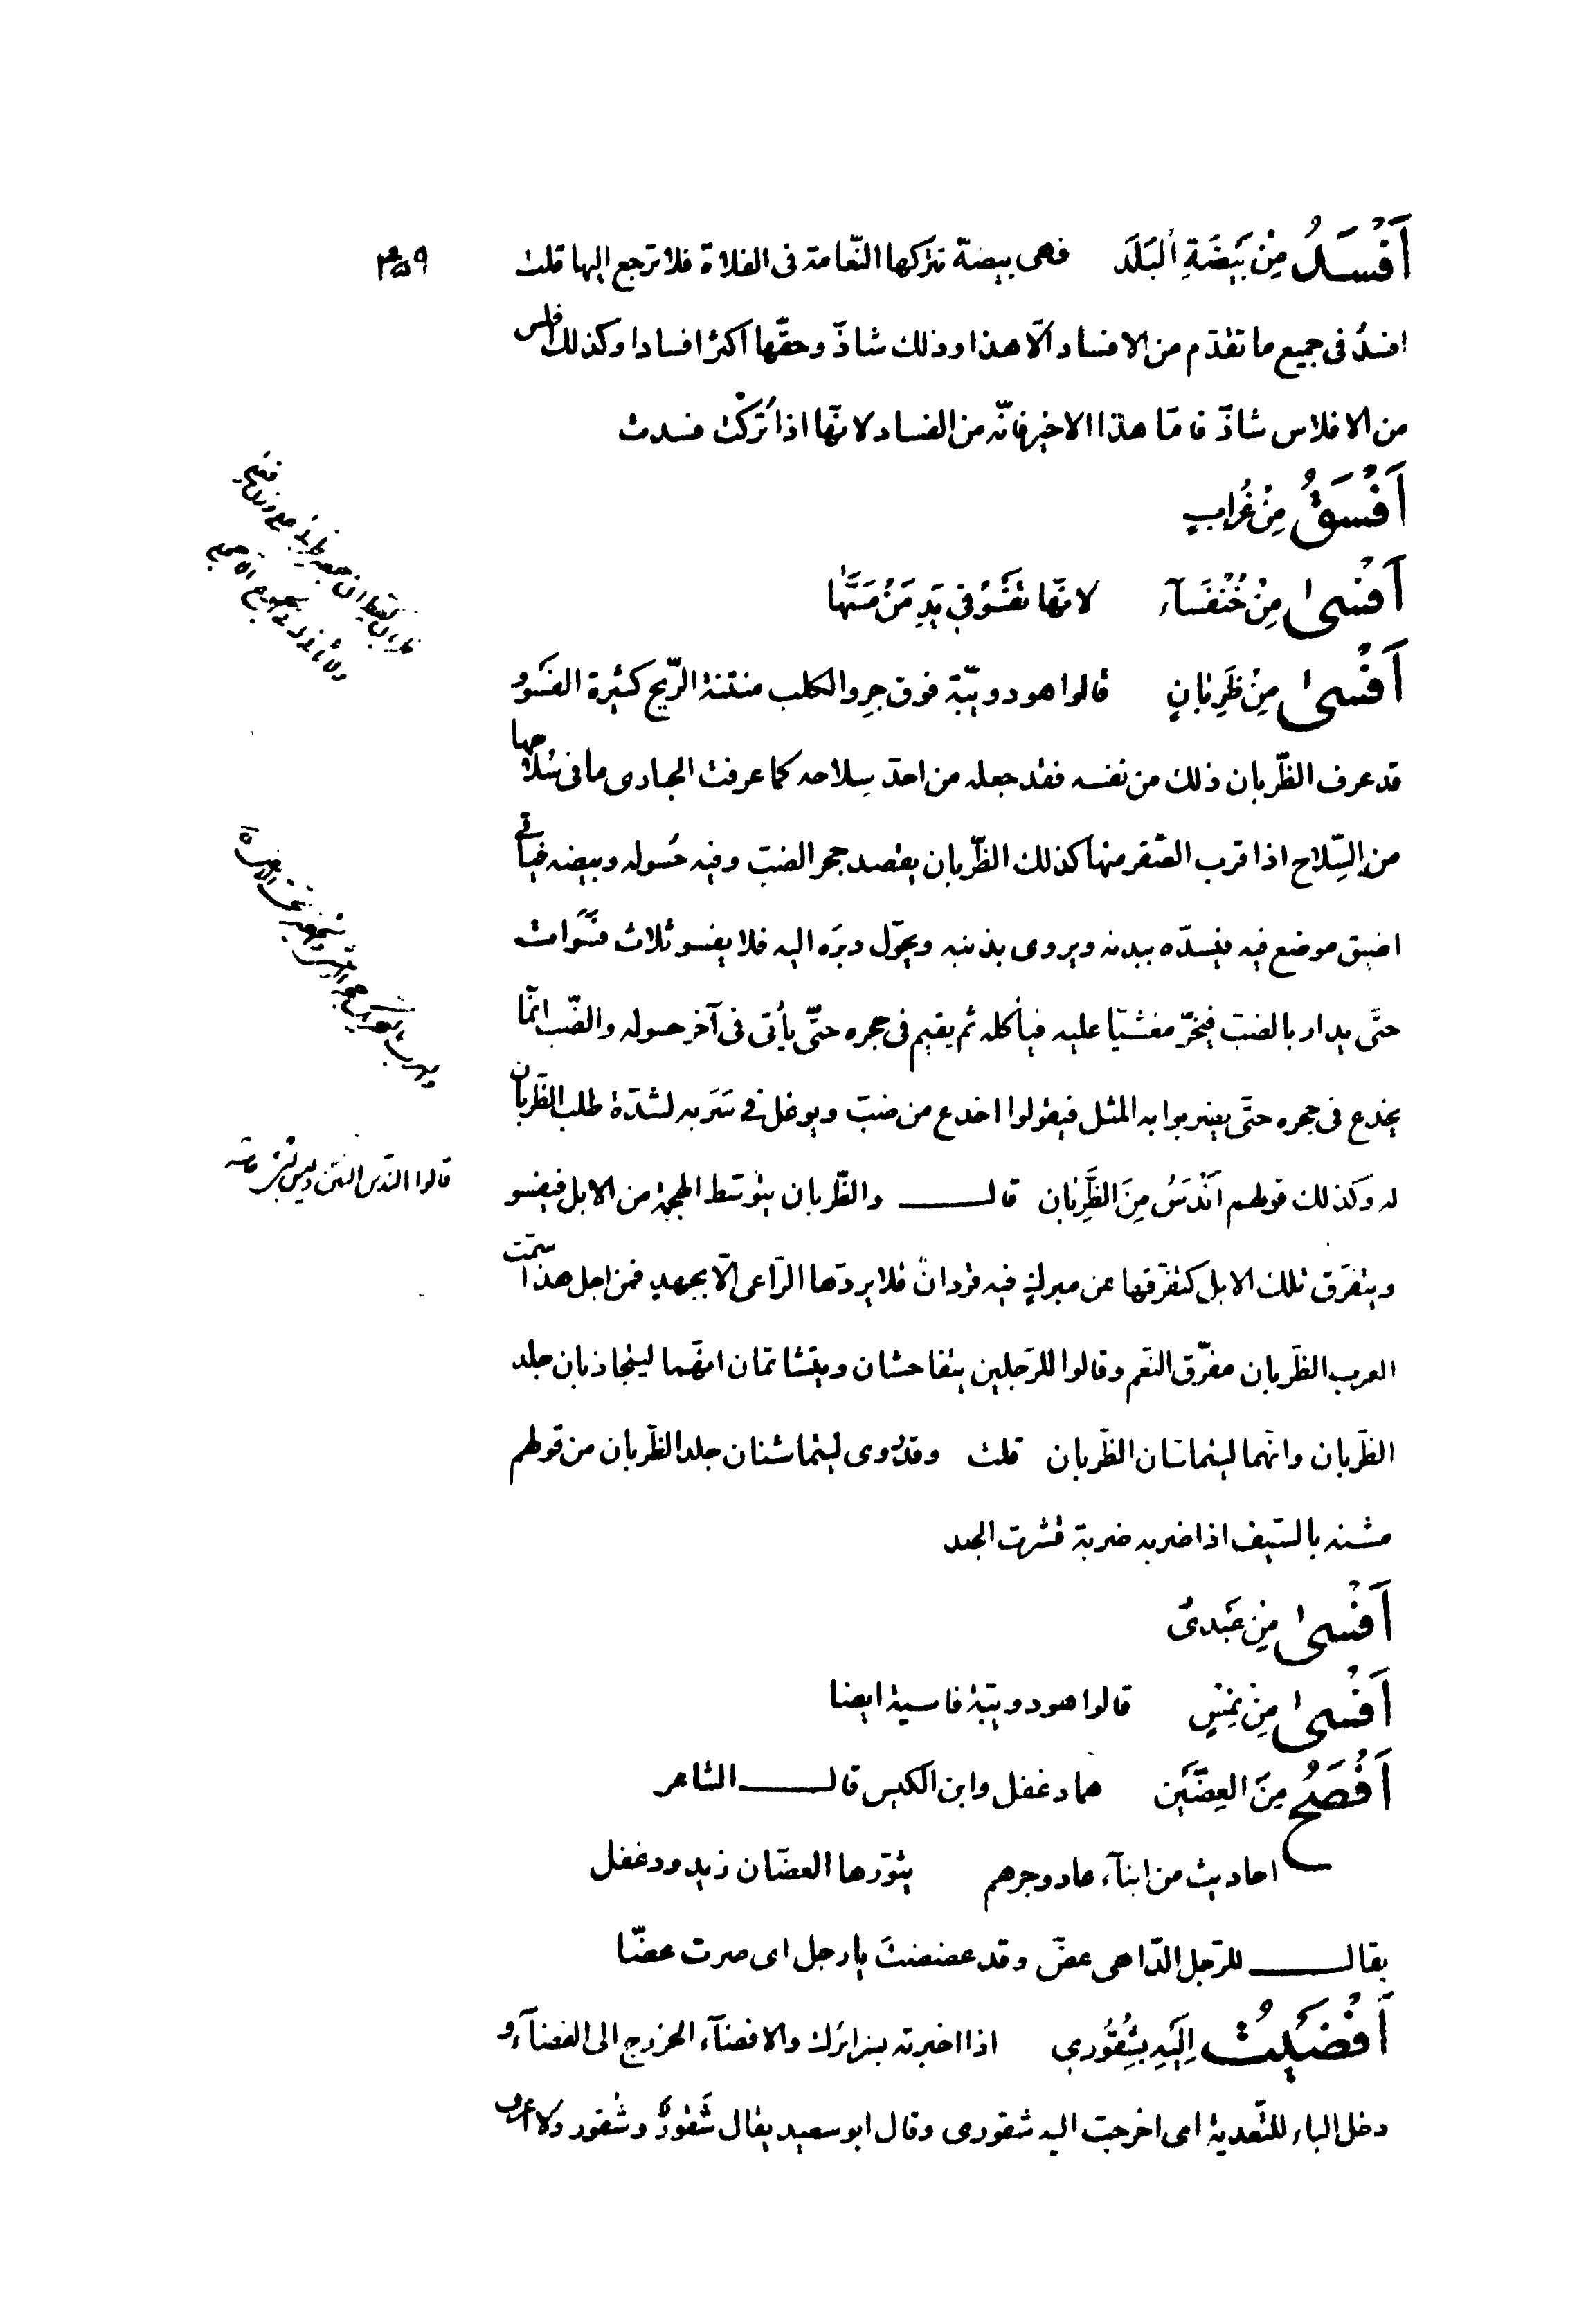 ٤٥٩
أَفْسَدُ مِنْ بَيْضَةِ الْبَلَدِ فهى بيضة تتركها النّعامة فى الفلاة فلا ترجع اليها قلت
افسدُ فى جميع ما تقدّم من الافساد الّا هذا وذلك شاذّ وحقّها اكثر افسادا وكذلك افلس
من الافلاس شاذّ فامّا هذا الاخير فانّه من الفساد لانّها اذا تُرِكَتْ فسدت
أَفْسَقُ مِنْ غُرابٍ
أَفْسى مِنْ خُنْفَسآء لانّها تَفْسُوُ فى يَدِ مَنْ مَسَّها
أَفْسى مِنْ ظَرِبانٍ قالوا هو دويبّة فوق جِرو الكلب منتنة الرّيح كثيرة الفَسْوِ و
قد عرف الظّربان ذلك من نفسه فقد جعله من احدّ سلاحه كما عرفت الحبارى ما فى سُلاحها
من السِّلاح اذا قرب الصّقر منها كذلك الظّربان يقصد جحر الضبّ وفيه حُسوله وبيضه فيأتى
اضيق موضع فيه فيسدّه ببدنه ويروى بذنبه ويحوّل دبرَه اليه فلا يفسو ثلاث فَسَوات
حتّى يدار بالضبّ فيخرّ مغشيّا عليه فيأكله ثم يقيم فى جحره حتّى يأتى فى آخر حسوله والضّب انّما
يخدع فى جحره حتّى يضربوا به المثل فيقولوا اخدع من ضبّ ويوغل فى سَرَبه لشدّة طلب الظّربان
له وكذلك قولهم اَنْدَسُ مِنَ الظَّرِبان قال والظّربان يتوسّط الهجمة من الابل فيفسو
ويتفرّق تلك الابل كتفرّقها عن مبرك فيه قردان فلا يردّها الرّاعى الّا بجهدٍ فمن اجل هذا سمّت
العرب الظّربان مفرّق النّعم وقالوا للرّجلين يتفاحشان ويتشاتمان انّهما ليتجاذبان جلد
الظّربان وانّهما ليتماسّان الظّربان قلت وقد رُوى ليتماشنان جلد الظّربان من قولهم
مشنه بالسّيف اذا ضربه ضربة قشرت الجلد
أَفْسى مِنْ عَبْدىّ
أَفْسى مِنْ نِمْسٍ قالوا هو دويبّة فاسية ايضا
أَفْصَحُ مِنَ العِضَّيْنِ هما دغفل وابن الكيس قال الشاعر
احاديث من ابنآء عاد وجرهم يثوّرها العضّان زيد ودغفل
يقال للرّجل الدّاهى عضّ وقد عضضتَ يا رجل اى صرت عضّا
أَفْضَيْتُ اِلَيْهِ بِشُقُورى اذا اخبرته بسرائرك والافضآء الخروج الى الفضآء و
دخل الباء للتّعدية اى اخرجت اليه شقورى وقال ابو سعيد يقال شَقُورٌ وشُقور ولا اعرف
قالوا النّدس النتن وليس بثبت